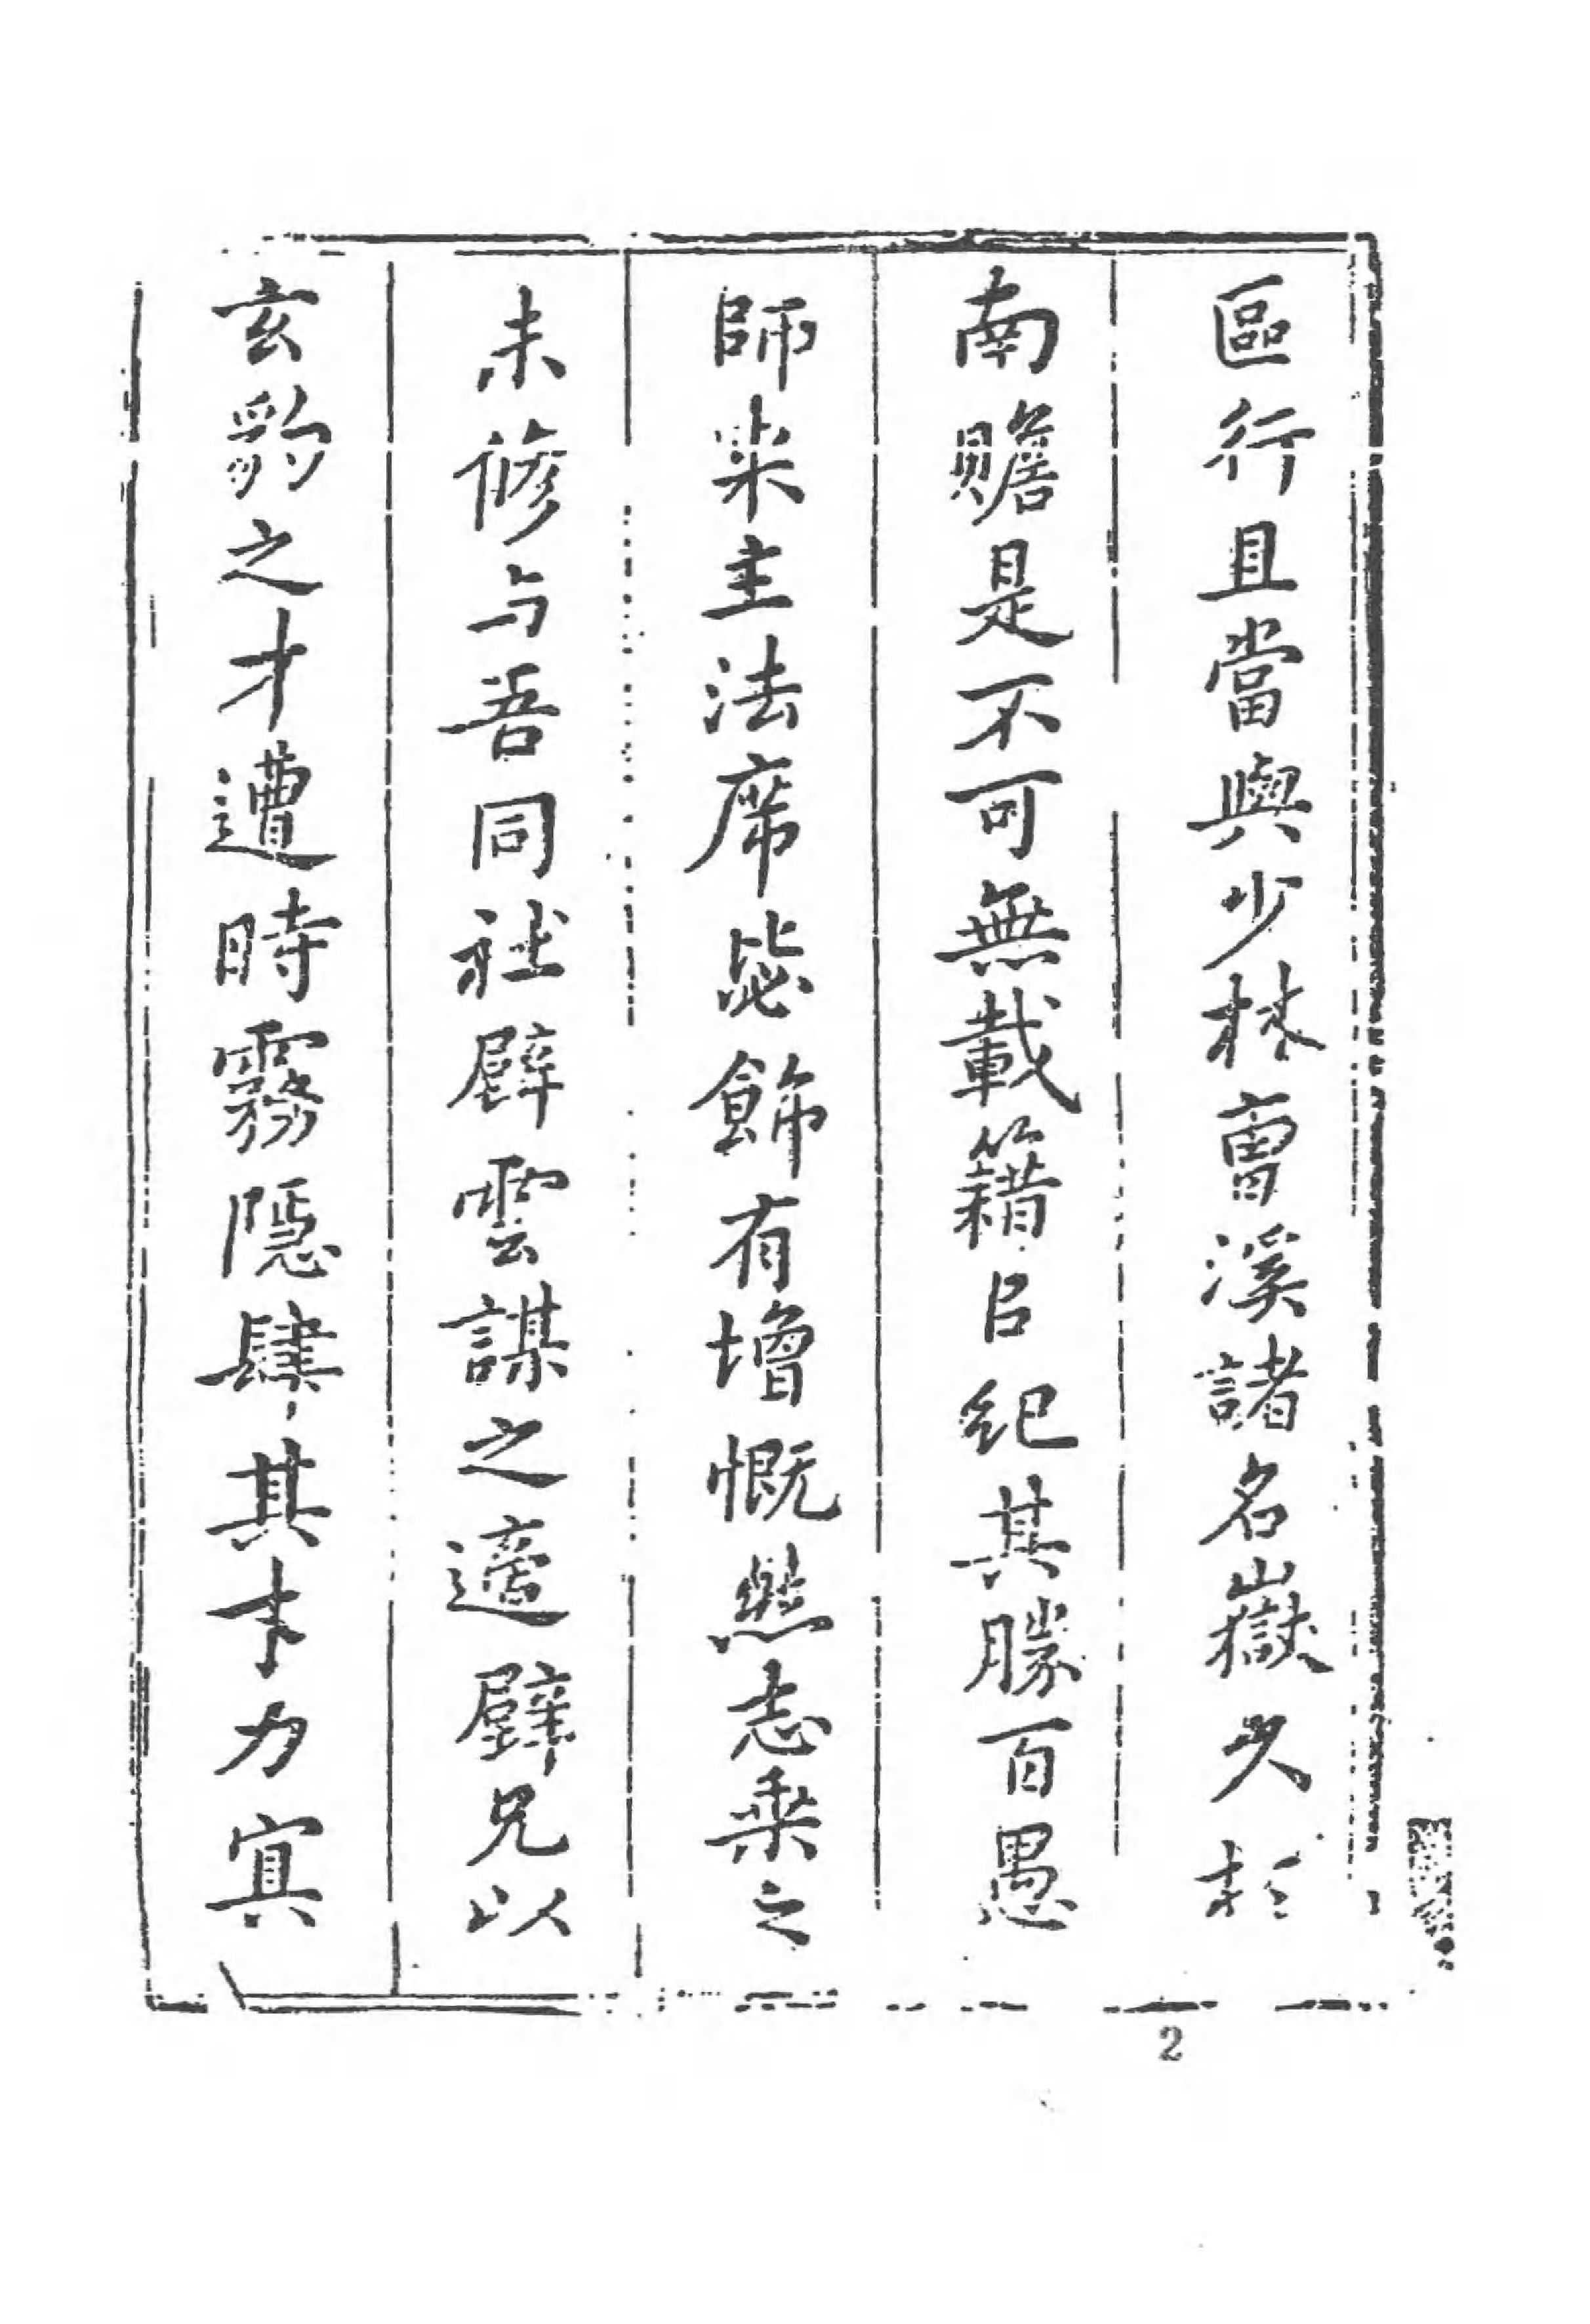 區行且當與少林曹溪諸名嶽久於
南贍是不可無載籍㠯紀其勝百愚
師來主法席毖飾有增慨然志乘之
未修与吾同社辟雲謀之適辟兄以
玄豹之才遭時霧隱肄其才力寘
2